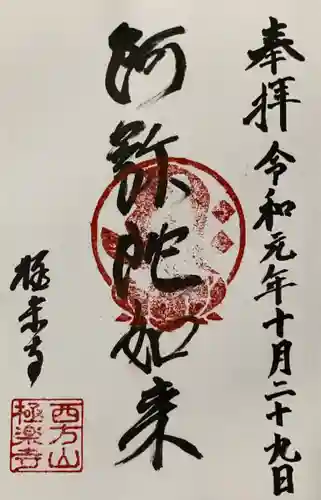 奉拝
令和元年十月二十九日
阿弥陀如来
極楽寺
西方山
極楽寺